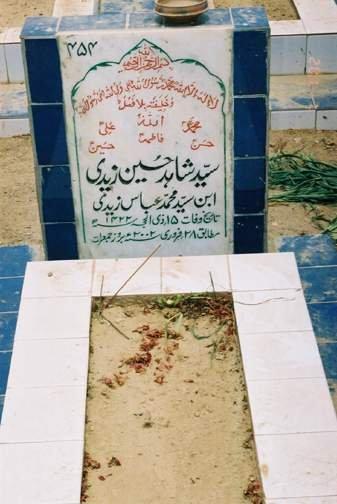 ۴۵۴
بسم الله الرحمن الرحيم
لا اله الا الله محمد رسول الله علی ولی الله وصی رسول الله
وخلیفتہ بلا فصل
الله
محمدؐ علیؑ
فاطمہؑ
حسنؑ حسینؑ
سیّد شاہد حسین زیدی
ابن سیّد محمد عباس زیدی
تاریخ وفات ۱۵ ذی الحجہ ۱۴۲۲ھ
مطابق ۲۸ فروری ۲۰۰۲ء بروز جمعرات